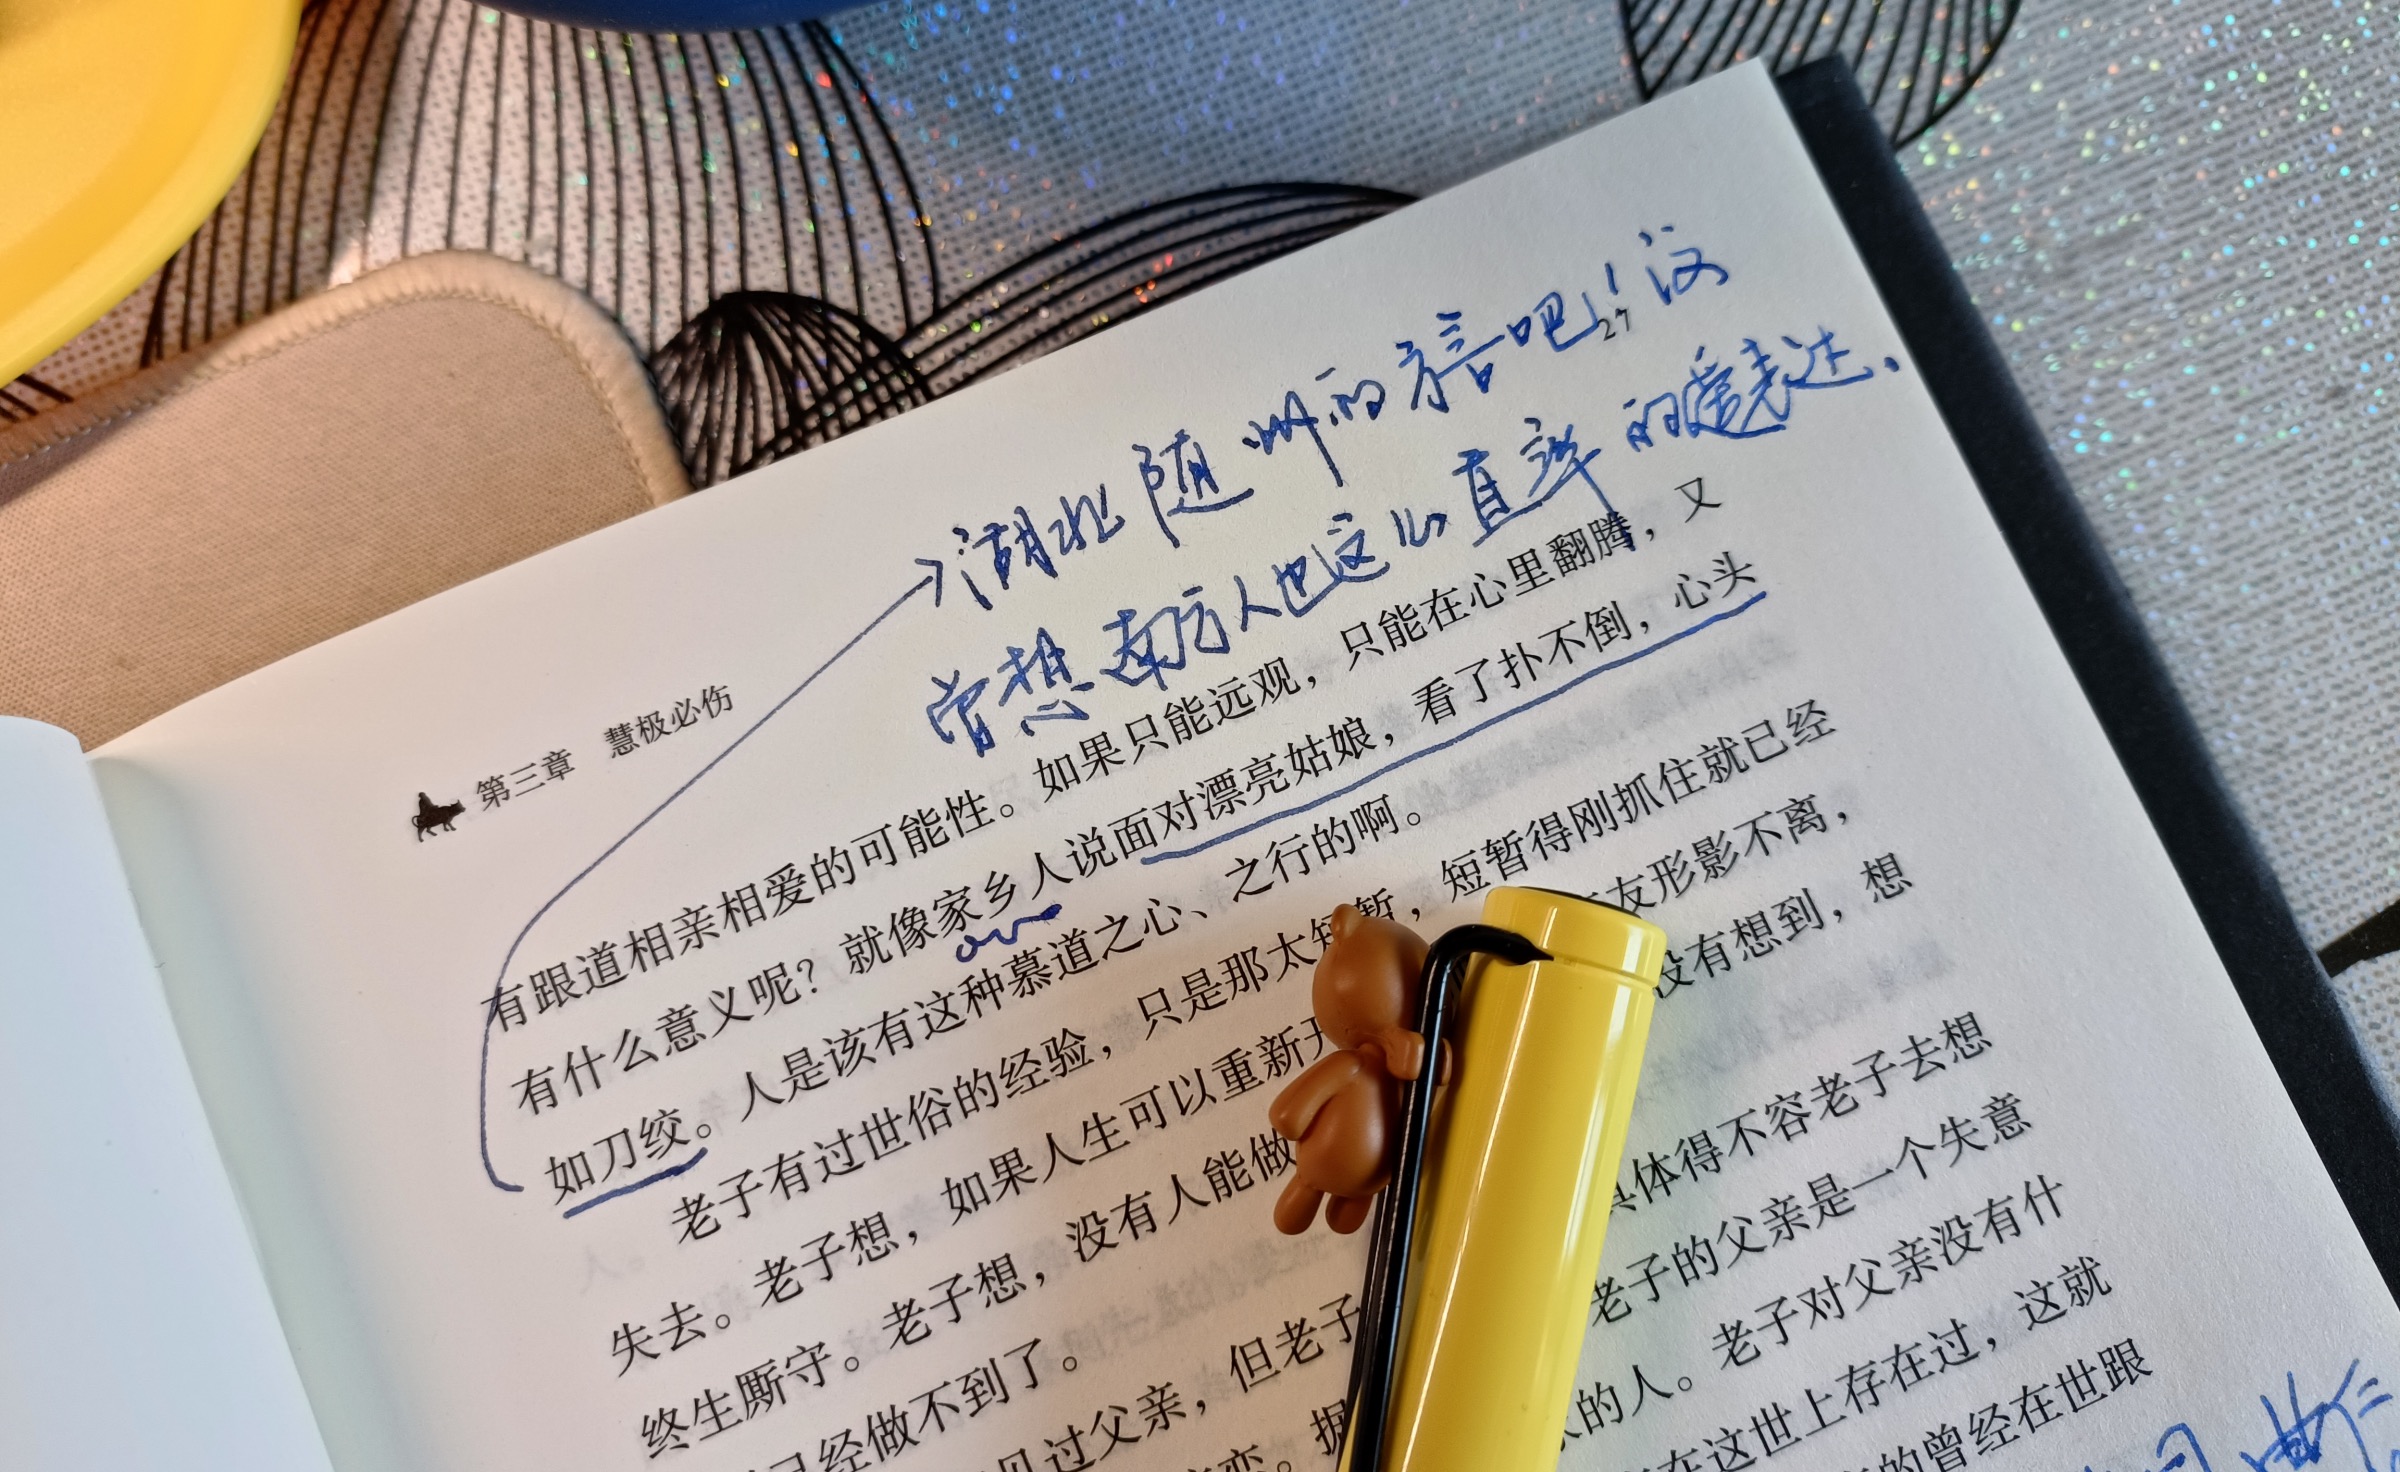 湖北随州的方言吧！没
曾想南方人也这么直率的爱表达、
27
第三章 慧极必伤
有跟道相亲相爱的可能性。如果只能远观，只能在心里翻腾，又
有什么意义呢？就像家乡人说面对漂亮姑娘，看了扑不倒，心头
如刀绞。人是该有这种慕道之心、之行的啊。
老子有过世俗的经验，只是那太短暂，短暂得刚抓住就已经
失去。老子想，如果人生可以重新开 友形影不离，
终生厮守。老子想，没有人能做 没有想到，想
已经做不到了。
见过父亲，但老子 具体得不容老子去想
恋。据 老子的父亲是一个失意
的人。老子对父亲没有什
在这世上存在过，这就
的曾经在世跟